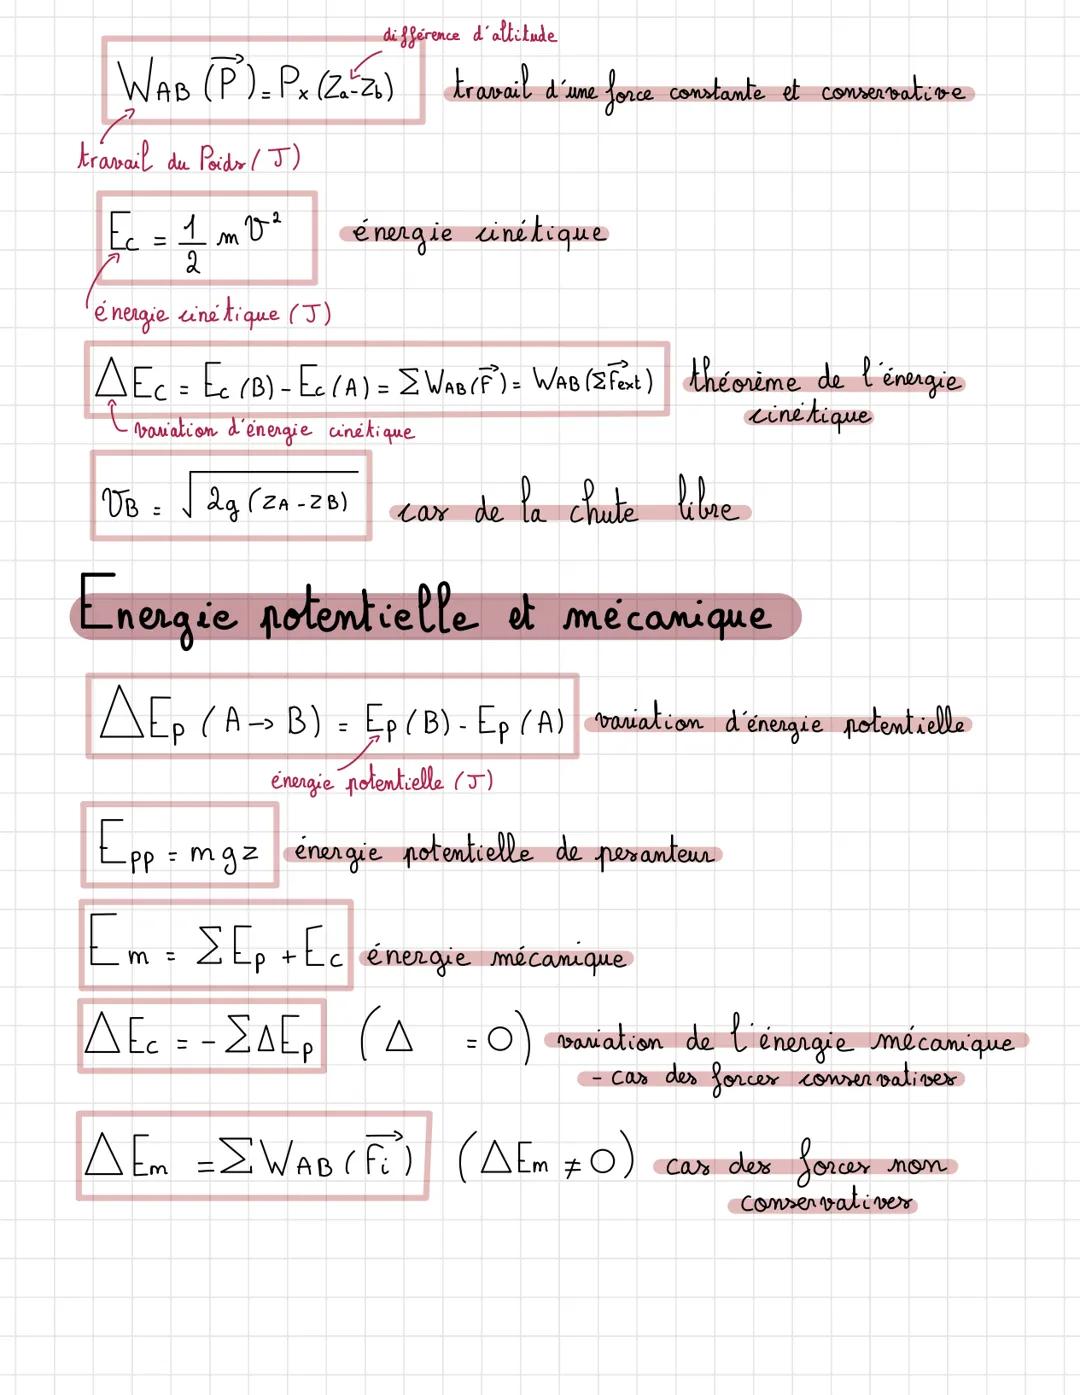 différence d'altitude
W_AB (P⃗) = P × (Za-Zb) travail d'une force constante et conservative
travail du Poids (J)
Ec = 1/2 m v² énergie cinétique
énergie cinétique (J)
ΔEc = Ec (B) - Ec (A) = ΣW_AB (F⃗) = W_AB (ΣF⃗ext) théorème de l'énergie
cinétique
variation d'énergie cinétique
v_B = √(2g (ZA - ZB)) cas de la chute libre
Energie potentielle et mécanique
ΔEp (A → B) = Ep (B) - Ep (A) variation d'énergie potentielle
énergie potentielle (J)
Epp = mgz énergie potentielle de pesanteur
Em = ΣEp + Ec énergie mécanique
ΔEc = - ΣΔEp (Δ = 0) variation de l'énergie mécanique
- cas des forces conservatives
ΔEm = ΣW_AB (F⃗i) (ΔEm ≠ 0) cas des forces non
conservatives